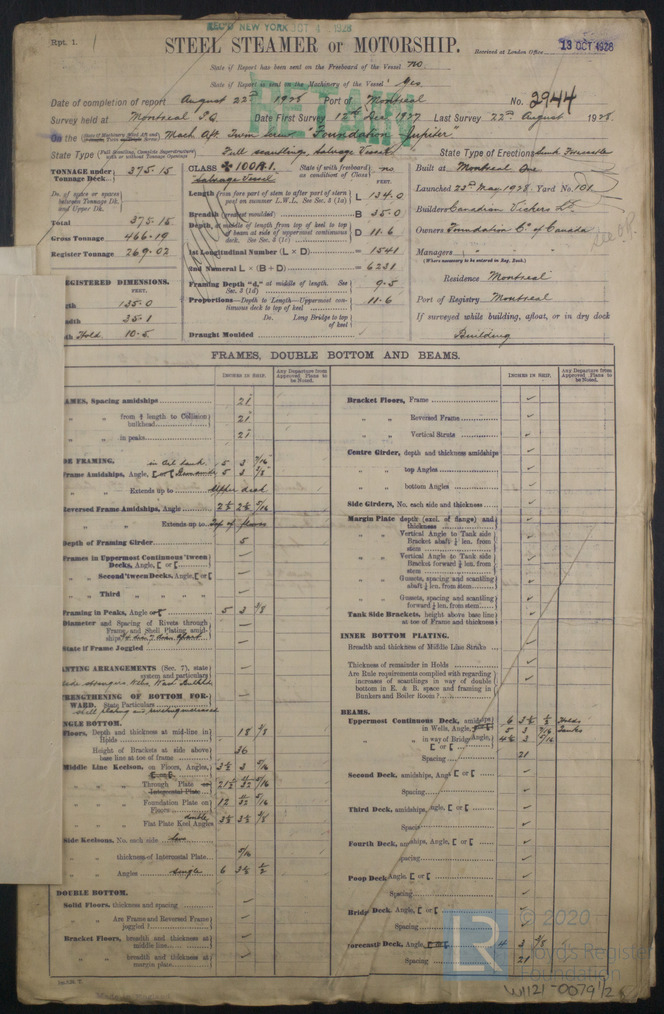 REC'D NEW YORK OCT 4 1928
Rpt. 1.
STEEL STEAMER or MOTORSHIP.
Received at London Office
13 OCT 1928
State if Report has been sent on the Freeboard of the Vessel no
State if Report is sent on the Machinery of the Vessel Yes
RETAIN
Date of completion of report August 22nd 1928 Port of Montreal No. 2944
Survey held at Montreal P.Q. Date First Survey 12th Dec 1927 Last Survey 22nd August 1928
On the Mach Aft. Twin Screw "Foundation Jupiter"
State Type Full scantling, Salvage Vessel State Type of Erections Sunk Forecastle
TONNAGE under Tonnage Deck 375.15
Do. of space or spaces between Tonnage Dk. and Upper Dk.
Total 375.15
Gross Tonnage 466.19
Register Tonnage 269.02
REGISTERED DIMENSIONS.
FEET.
135.0
25.1
Hold. 10.5
CLASS ✠ 100A1. State if with freeboard as condition of Class no
Salvage Vessel
FEET.
Length from fore part of stem to after part of stern post on summer L.W.L. See Sec. 3 (1a) L 134.0
Breadth (greatest moulded) B 35.0
Depth, at middle of length from top of keel to top of beam at side of uppermost continuous deck. See Sec. 3 (1c) D 11.6
1st Longitudinal Number (L × D) = 1541
2nd Numeral L × (B + D) = 6231
Framing Depth "d," at middle of length. See Sec. 3 (1d) 9.5
Proportions—Depth to Length—Uppermost continuous deck to top of keel 11.6
Do. Long Bridge to top of keel
Draught Moulded
Built at Montreal Que
Launched 23rd May 1928 Yard No. 101
Builders Canadian Vickers Ld.
Owners Foundation Co of Canada
Managers " " "
(Where necessary to be entered in Reg. Book.)
Residence Montreal
Port of Registry Montreal
If surveyed while building, afloat, or in dry dock
Building
FRAMES, DOUBLE BOTTOM AND BEAMS.
INCHES IN SHIP.
Any Departure from Approved Plans to be Noted.
INCHES IN SHIP.
Any Departure from Approved Plans to be Noted.
AMES, Spacing amidships 21
" " from ¼ length to Collision bulkhead 21
" " in peaks 21
DE FRAMING.
Frame Amidships, Angle, [ or [
" " Extends up to Upper deck
Reversed Frame Amidships, Angle 2½ 2½ 5/16
" " Extends up to Top of floors
Depth of Framing Girder 5
Frames in Uppermost Continuous 'tween Decks, Angle, [ or [
" Second 'tween Decks, Angle, [ or [
" Third " " " "
Framing in Peaks, Angle or [ 5 3 3/8
Diameter and Spacing of Rivets through Frame and Shell Plating amidships
State if Frame Joggled
ANTING ARRANGEMENTS (Sec. 7), state system and particulars
RENGTHENING OF BOTTOM FORWARD. State Particulars
Shell plating and riveting increased
NGLE BOTTOM.
Floors, Depth and thickness at mid-line in Holds 18 3/8
Height of Brackets at side above base line at toe of frame 36
Middle Line Keelson, on Floors, Angles, [ or [ 3½ 3 5/16
" " Through Plate or Intercostal Plate
" " Foundation Plate on Floors 12
" " Flat Plate Keel Angles double 3½ 3½ 3/8
Side Keelsons, No. each side
" " thickness of Intercostal Plate 5/16
" " Angles single 6 3½ ½
DOUBLE BOTTOM.
Solid Floors, thickness and spacing
" " Are Frame and Reversed Frame joggled?
Bracket Floors, breadth and thickness at middle line
" " breadth and thickness at margin plate
Bracket Floors, Frame
" " Reversed Frame
" " Vertical Struts
Centre Girder, depth and thickness amidships
" " top Angles
" " bottom Angles
Side Girders, No. each side and thickness
Margin Plate depth (excl. of flange) and thickness
" " Vertical Angle to Tank side Bracket abaft ¼ len. from stem
" " Vertical Angle to Tank side Bracket forward ¼ len. from stem
" " Gussets, spacing and scantling abaft ¼ len. from stem
" " Gussets, spacing and scantling forward ¼ len. from stem
Tank Side Brackets, height above base line at toe of Frame and thickness
INNER BOTTOM PLATING.
Breadth and thickness of Middle Line Strake
Thickness of remainder in Holds
Are Rule requirements complied with regarding increases of scantlings in way of double bottom in E. & B. space and framing in Bunkers and Boiler Room?
BEAMS.
Uppermost Continuous Deck, amidships in Wells, Angle, [ or [ 6 3½ Holds
" " in way of Bridge, Angle, [ or [ Tanks
Spacing 21
Second Deck, amidships, Angle, [ or [
Spacing
Third Deck, amidships, Angle, [ or [
Spacing
Fourth Deck, amidships, Angle, [ or [
Spacing
Poop Deck, Angle, [ or [
Spacing
Bridge Deck, Angle, [ or [
Spacing
Forecastle Deck, Angle, [ or [ 4 3 3/8
Spacing 21
© 2020
Lloyd's Register
Foundation
W1121-0079 1/2